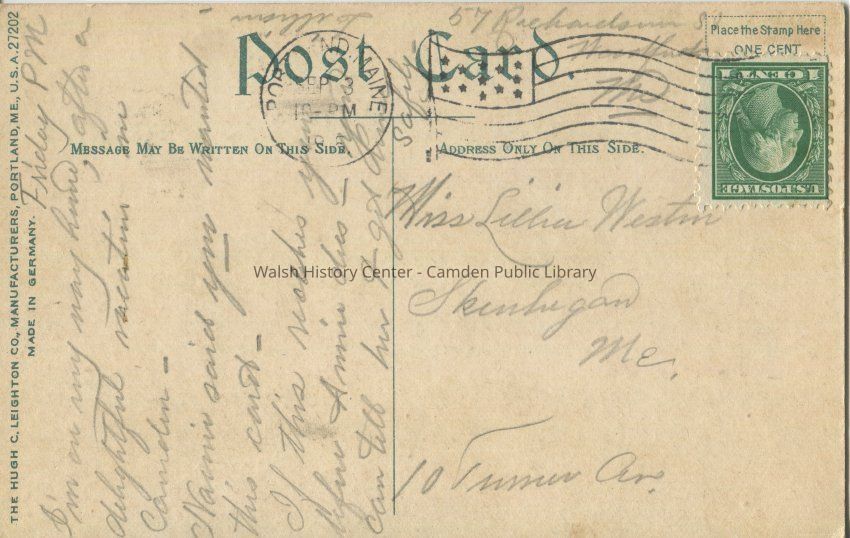 THE HUGH C. LEIGHTON CO., MANUFACTURERS, PORTLAND, ME., U.S.A. 27202
MADE IN GERMANY.
Post Card.
Place the Stamp Here
ONE CENT
MESSAGE MAY BE WRITTEN ON THIS SIDE.
ADDRESS ONLY ON THIS SIDE.
PORTLAND, MAINE
SEP 3
10-PM
U.S. POSTAGE
1 CENT 1
Friday PM
I'm on my way home, after a
delightful vacation in
Camden -
Naomi said you wanted
this card -
If this reaches you
before Annie does - you
can tell her I got away
safely -
Lillian
57 Richardson St
Miss Lillian Weston
Skowhegan
Me.
10 Turner Av.
Walsh History Center - Camden Public Library